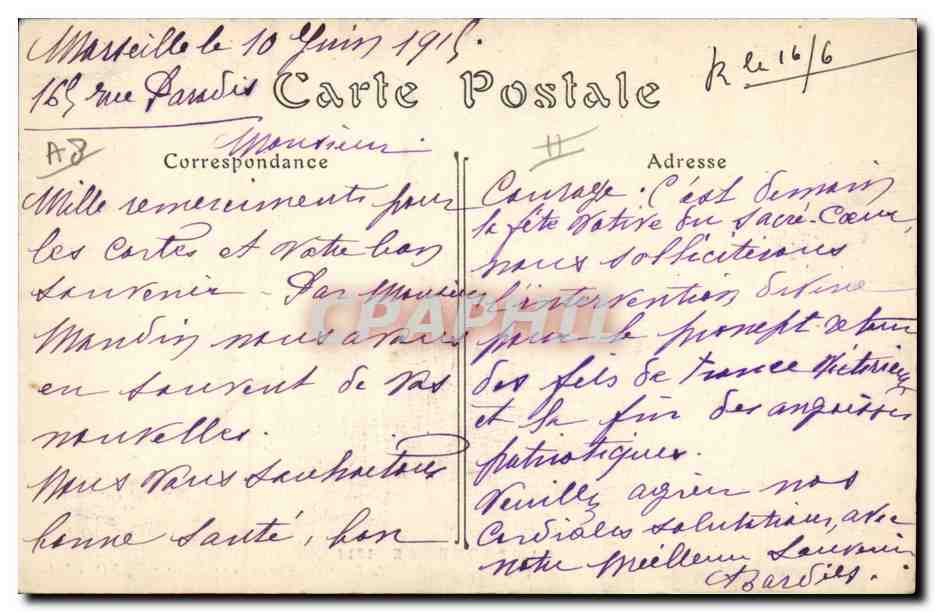 Marseille le 10 Juin 1915.
165 rue Paradis
R le 16/6
Carte Postale
Monsieur
A8
H
Correspondance
Adresse
Mille remerciments pour
les cartes et votre bon
souvenir - Par Monsieur
Mandin nous avons
eu souvent de vos
nouvelles.
Nous vous souhaitons
bonne santé, bon
Courage. C'est demain
la fête votive du Sacré-Coeur,
nous solliciterons
l'intervention divine
pour le prompt retour
des fils de France victorieux
et la fin des angoisses
patriotiques.
Veuillez agréer nos
Cordiales salutations, avec
notre meilleur Souvenir
CPAPHIL